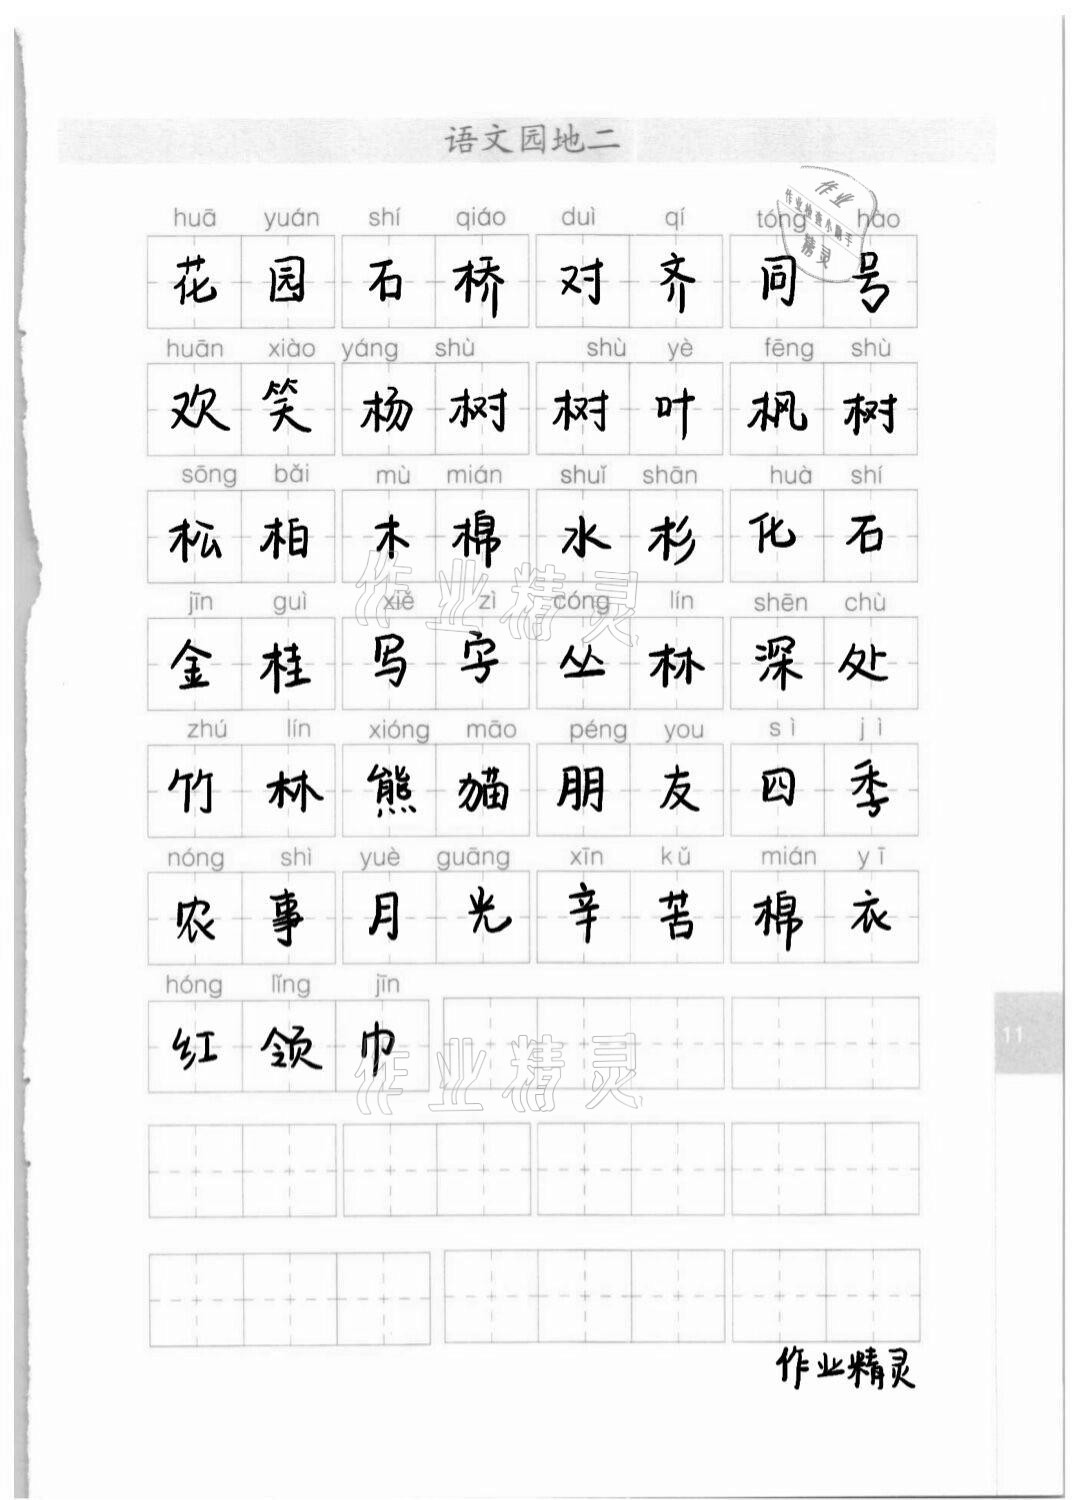 语文园地二
huā yuán shí qiáo duì qí tóng hào
花园 石桥 对齐 同号
huān xiào yáng shù shù yè fēng shù
欢笑 杨树 树叶 枫树
sōng bǎi mù mián shuǐ shān huà shí
松柏 木棉 水杉 化石
jīn guì xiě zì cóng lín shēn chù
金桂 写字 丛林 深处
zhú lín xióng māo péng you sì jì
竹林 熊猫 朋友 四季
nóng shì yuè guāng xīn kǔ mián yī
农事 月光 辛苦 棉衣
hóng lǐng jīn
红领巾
11
作业精灵
作业
作业检查小助手
精灵
作业精灵
作业精灵